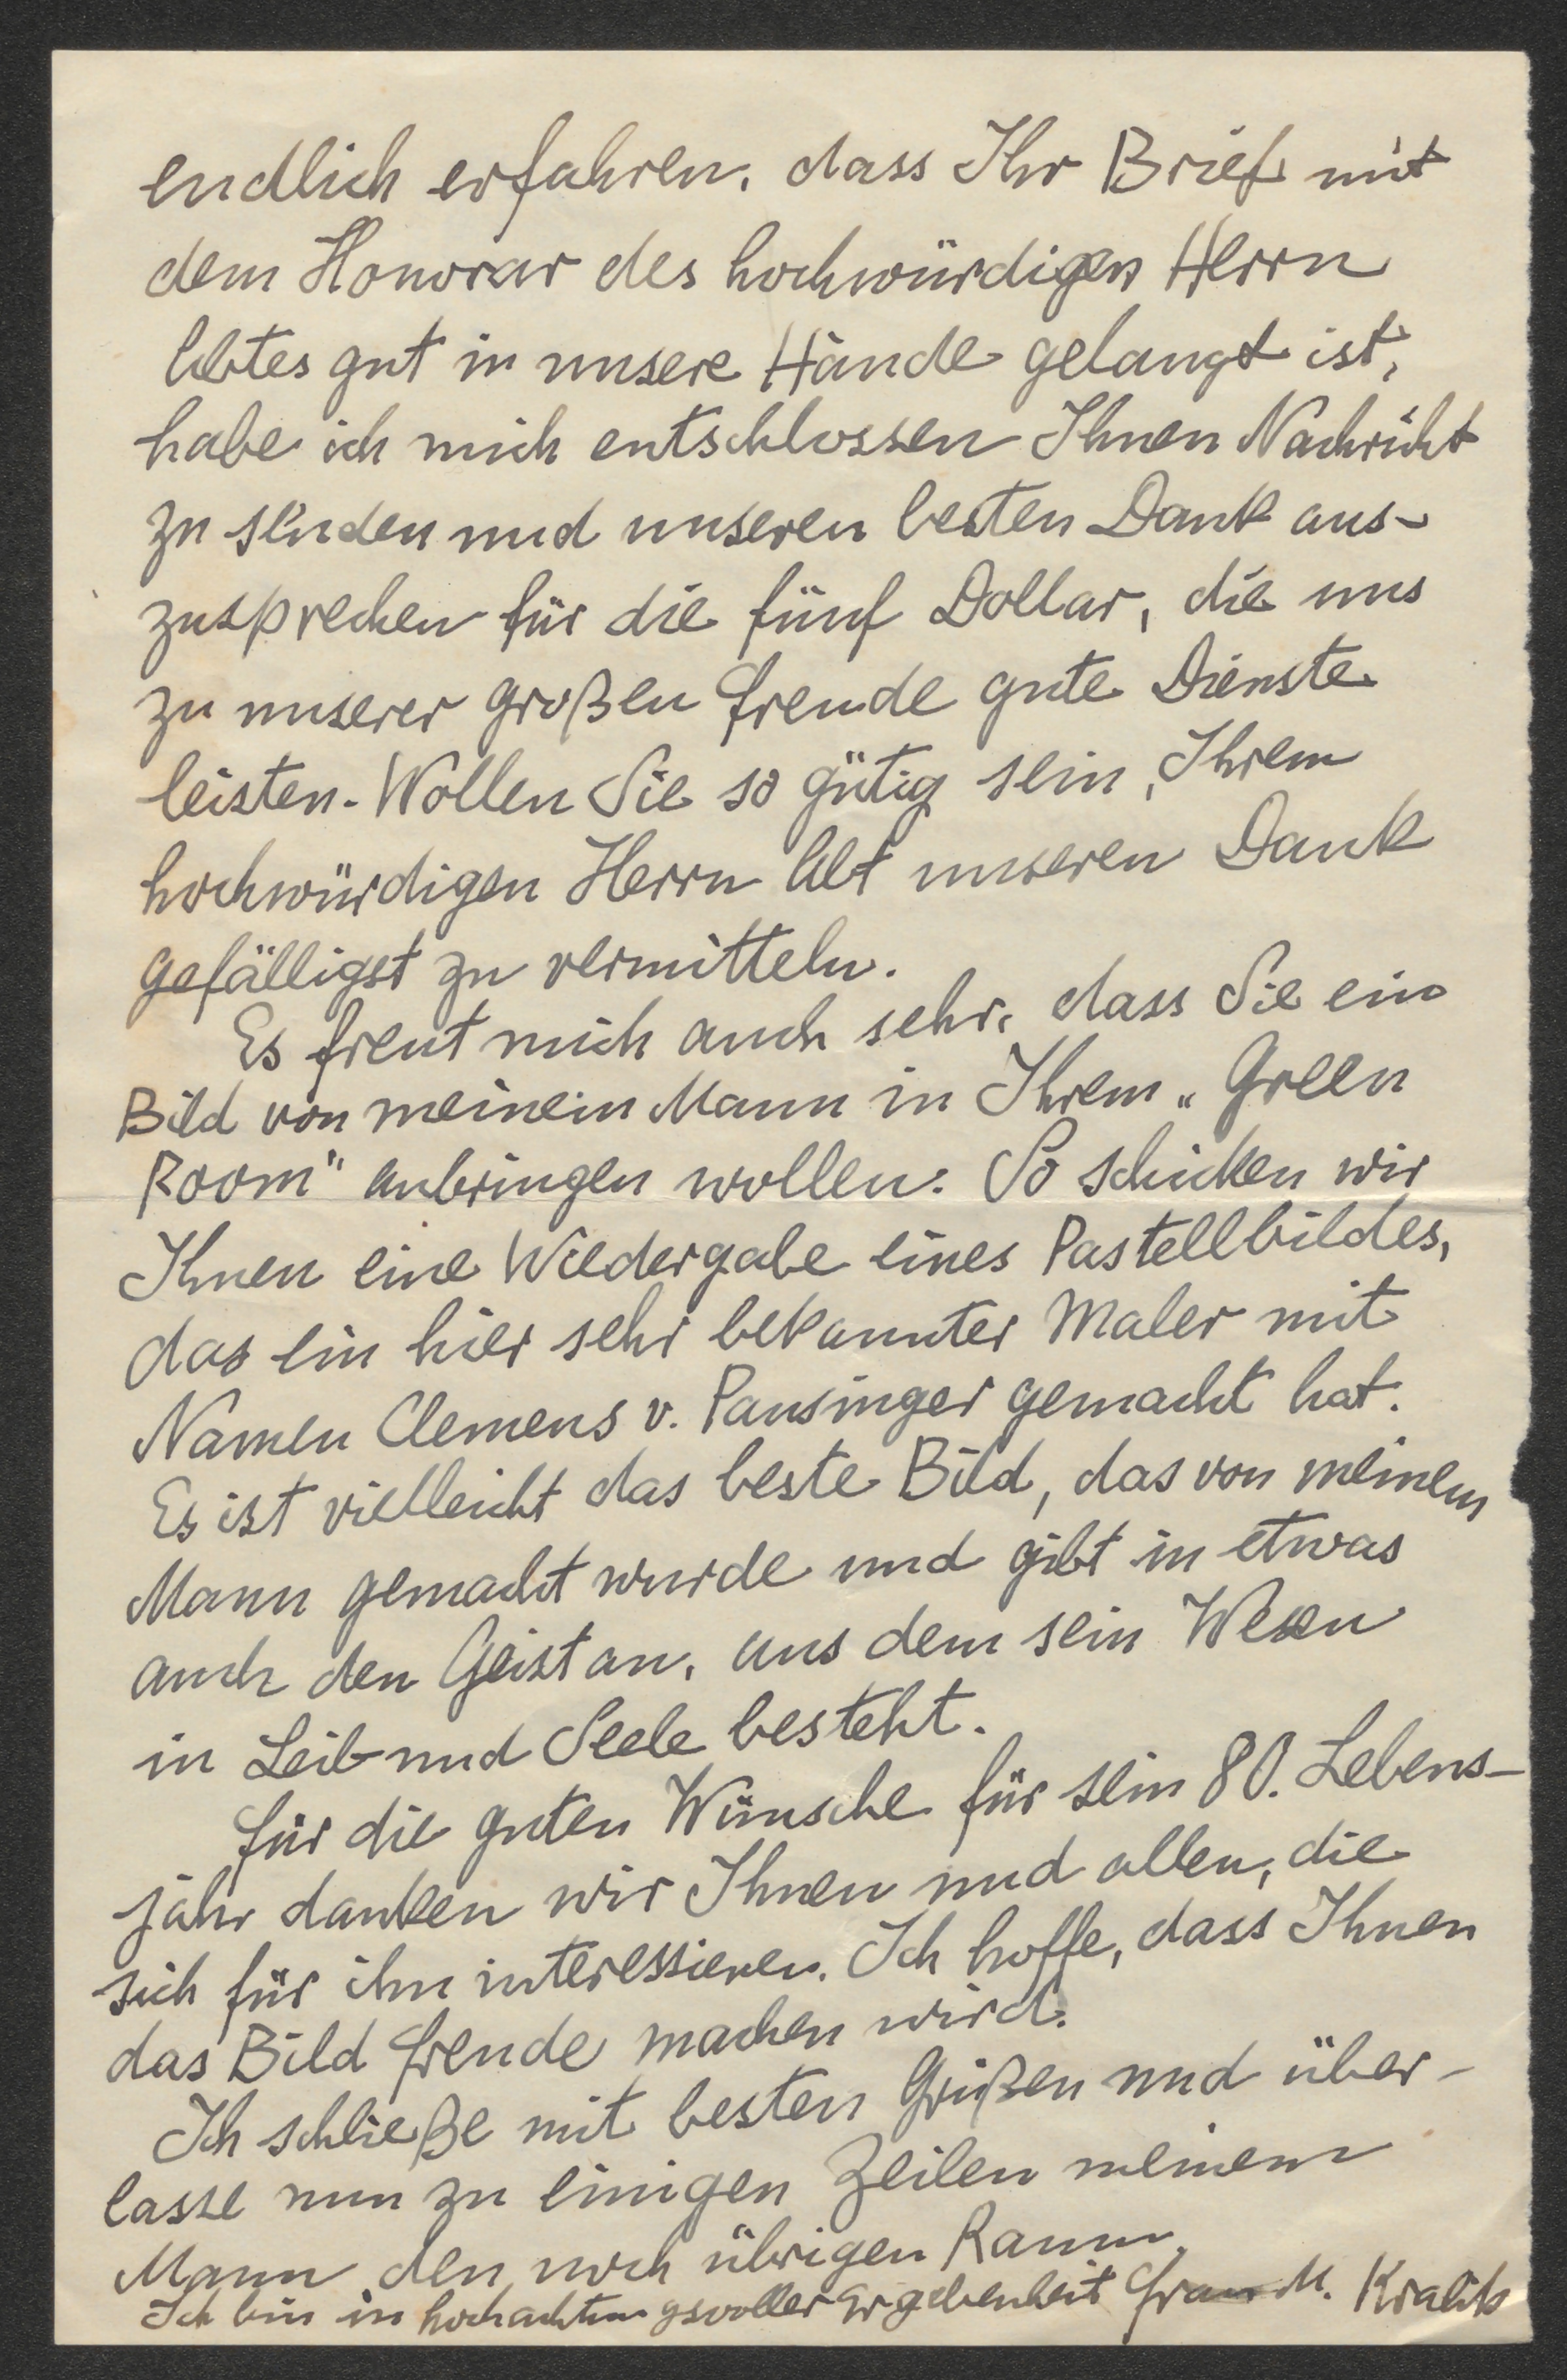 endlich erfahren, dass Ihr Brief mit
dem Honorar des hochwürdigen Herrn
Abtes gut in unsere Hände gelangt ist,
habe ich mich entschlossen Ihnen Nachricht
zu senden und unseren besten Dank aus-
zusprechen für die fünf Dollar, die uns
zu unserer großen Freude gute Dienste
leisten. Wollen Sie so gütig sein, Ihrem
hochwürdigen Herrn Abt unseren Dank
gefälligst zu vermitteln.
Es freut mich auch sehr, dass Sie ein
Bild von meinem Mann in Ihrem „Green
Room" anbringen wollen. So schicken wir
Ihnen eine Wiedergabe eines Pastellbildes,
das ein hier sehr bekannter Maler mit
Namen Clemens v. Pausinger gemacht hat.
Es ist vielleicht das beste Bild, das von meinem
Mann gemacht wurde und gibt in etwas
auch den Geist an, aus dem sein Wesen
in Leib und Seele besteht.
Für die guten Wünsche für sein 80. Lebens-
jahr danken wir Ihnen und allen, die
sich für ihn interessieren. Ich hoffe, dass Ihnen
das Bild Freude machen wird.
Ich schließe mit besten Grüßen und über-
lasse nun zu einigen Zeilen meinem
Mann den noch übrigen Raum.
Ich bin in hochachtungsvoller Ergebenheit Frau M. Kralik